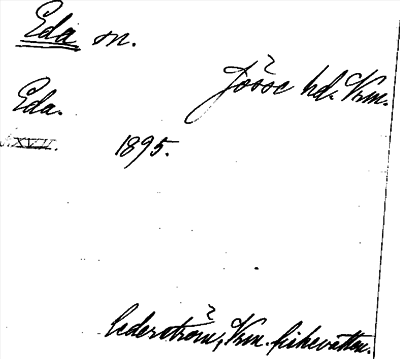 Eda sn.
Jösse hd. Vrm.
Eda.
XVII. 1895.
Cederström, Vrm. fiskevatten.